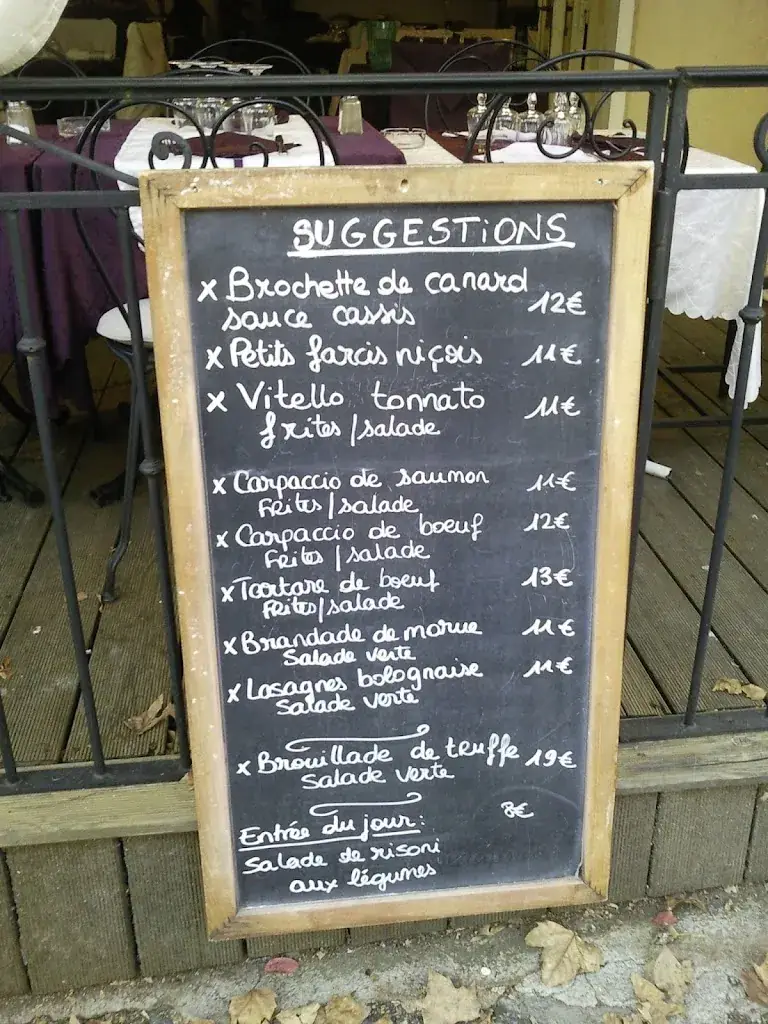 SUGGESTIONS
x Brochette de canard 12€
sauce cassis
x Petits farcis niçois 11€
x Vitello tonnato 11€
frites/salade
x Carpaccio de saumon 11€
Frites/salade
x Carpaccio de boeuf 12€
Frites/salade
x Tartare de boeuf 13€
Frites/salade
x Brandade de morue 11€
Salade verte
x Lasagnes bolognaise 11€
Salade verte
x Brouillade de truffe 19€
Salade verte
Entrée du jour: 8€
Salade de risoni
aux légumes